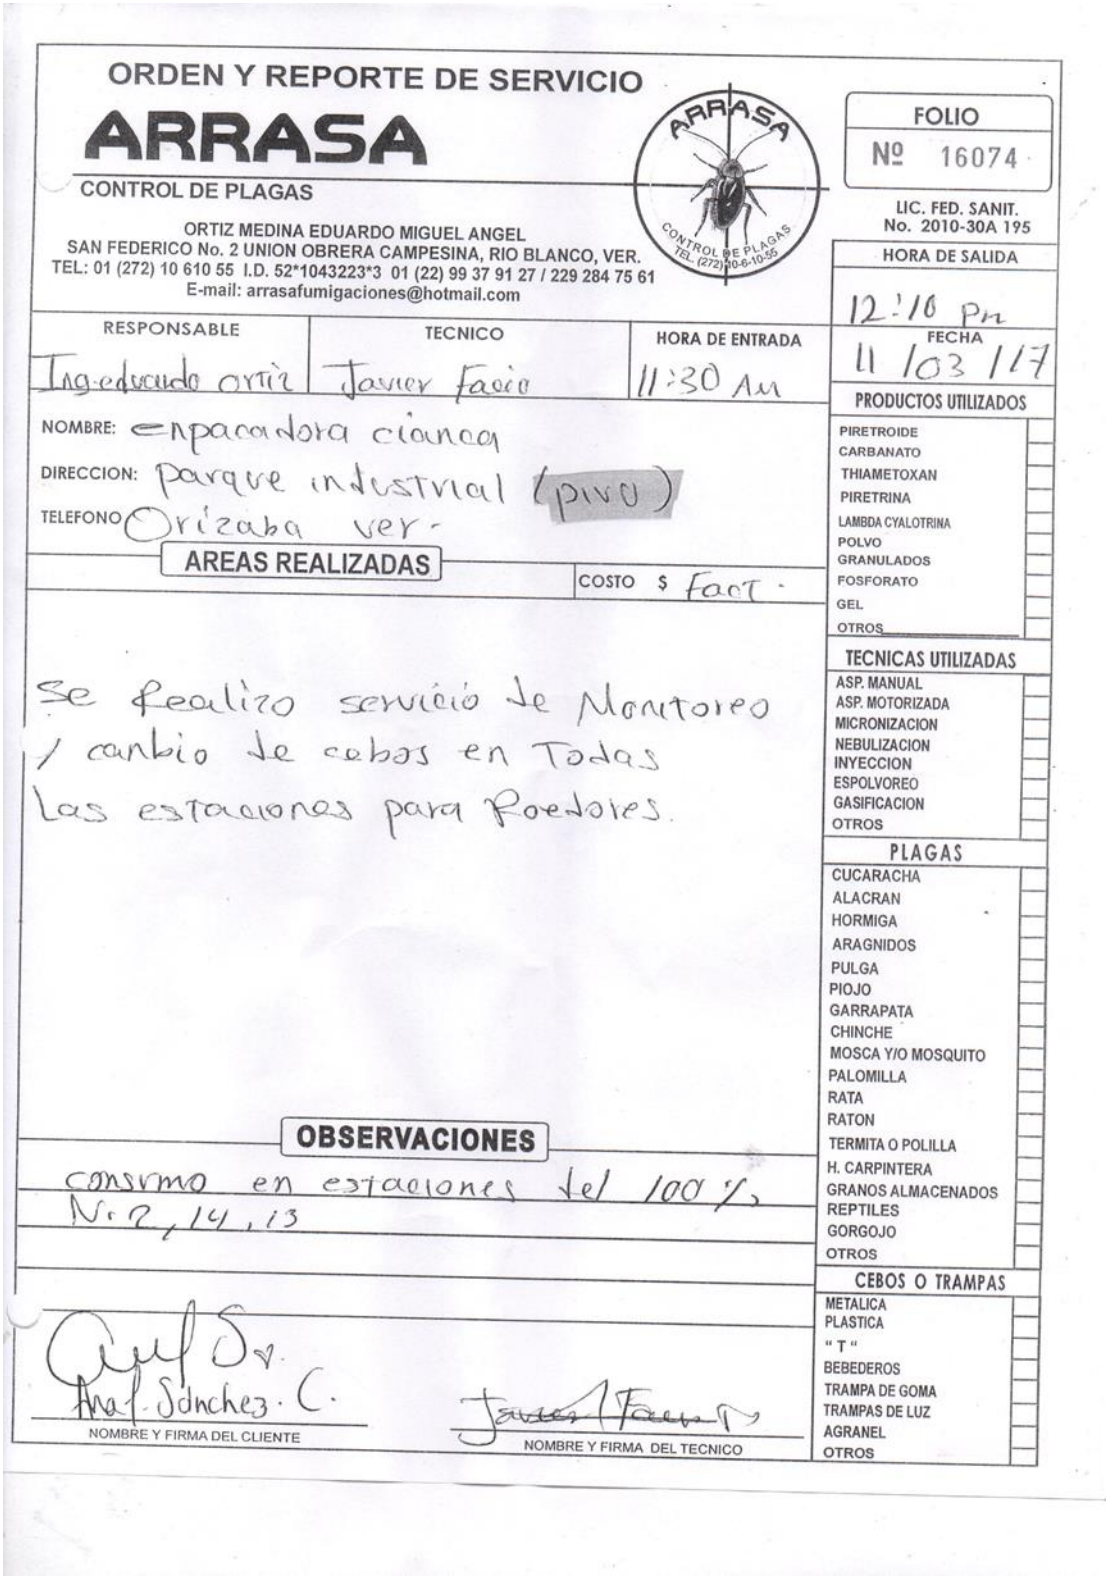 ORDEN Y REPORTE DE SERVICIO
ARRASA
CONTROL DE PLAGAS
ARRASA
CONTROL DE PLAGAS
TEL. (272) 10-6-10-55
FOLIO
Nº 16074
LIC. FED. SANIT.
No. 2010-30A 195
ORTIZ MEDINA EDUARDO MIGUEL ANGEL
SAN FEDERICO No. 2 UNION OBRERA CAMPESINA, RIO BLANCO, VER.
TEL: 01 (272) 10 610 55 I.D. 52*1043223*3 01 (22) 99 37 91 27 / 229 284 75 61
E-mail: arrasafumigaciones@hotmail.com
HORA DE SALIDA
12:10 pm
RESPONSABLE
Ing. eduardo ortiz
TECNICO
Javier Facio
HORA DE ENTRADA
11:30 Am
FECHA
11 /03 /17
NOMBRE: enpacadora cianca
DIRECCION: parque industrial (pivo)
TELEFONO Orizaba ver.
AREAS REALIZADAS
COSTO $ Fact.
Se Realizo servicio de Monitoreo
y canbio de cebos en Todas
Las estaciones para Roedores.
OBSERVACIONES
consumo en estaciones del 100 %
N. 2, 14, 13
Sánchez. C.
NOMBRE Y FIRMA DEL CLIENTE
NOMBRE Y FIRMA DEL TECNICO
PRODUCTOS UTILIZADOS
PIRETROIDE
CARBANATO
THIAMETOXAN
PIRETRINA
LAMBDA CYALOTRINA
POLVO
GRANULADOS
FOSFORATO
GEL
OTROS
TECNICAS UTILIZADAS
ASP. MANUAL
ASP. MOTORIZADA
MICRONIZACION
NEBULIZACION
INYECCION
ESPOLVOREO
GASIFICACION
OTROS
PLAGAS
CUCARACHA
ALACRAN
HORMIGA
ARAGNIDOS
PULGA
PIOJO
GARRAPATA
CHINCHE
MOSCA Y/O MOSQUITO
PALOMILLA
RATA
RATON
TERMITA O POLILLA
H. CARPINTERA
GRANOS ALMACENADOS
REPTILES
GORGOJO
OTROS
CEBOS O TRAMPAS
METALICA
PLASTICA
" T "
BEBEDEROS
TRAMPA DE GOMA
TRAMPAS DE LUZ
AGRANEL
OTROS